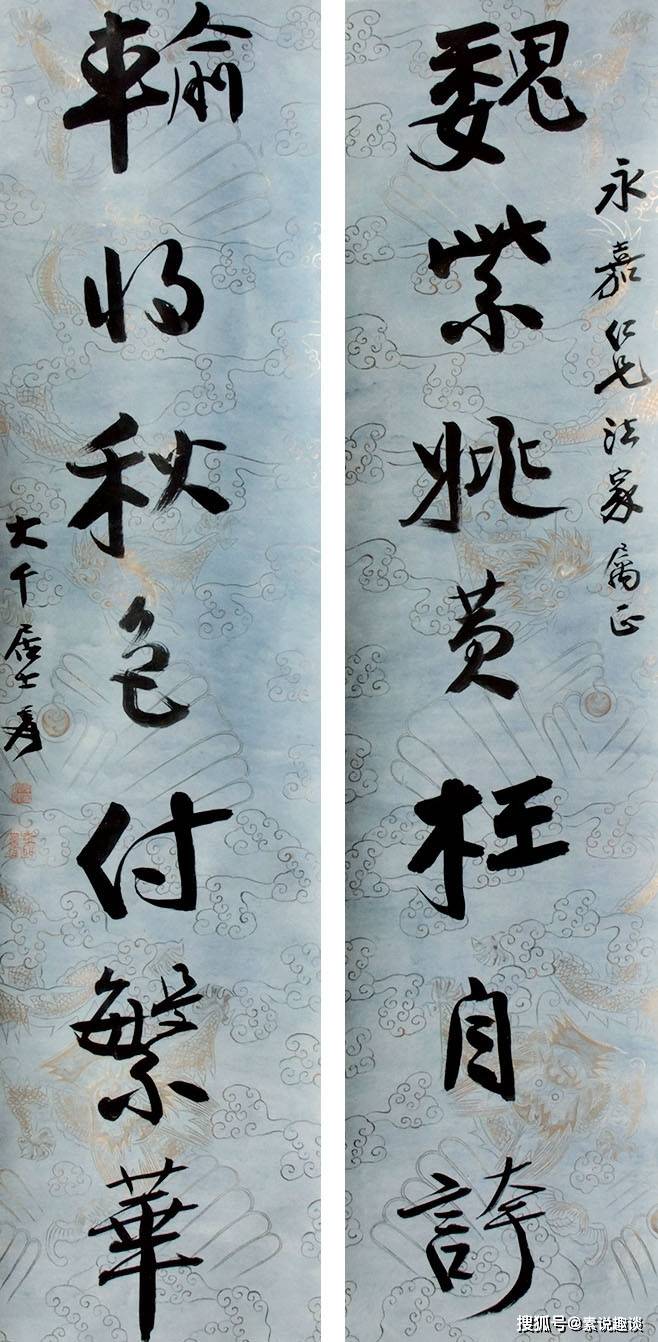 永嘉仁兄法家属正
魏紫姚黄枉自誇
輸將秋色付繁華
大千居士爰
搜狐号@素说趣谈